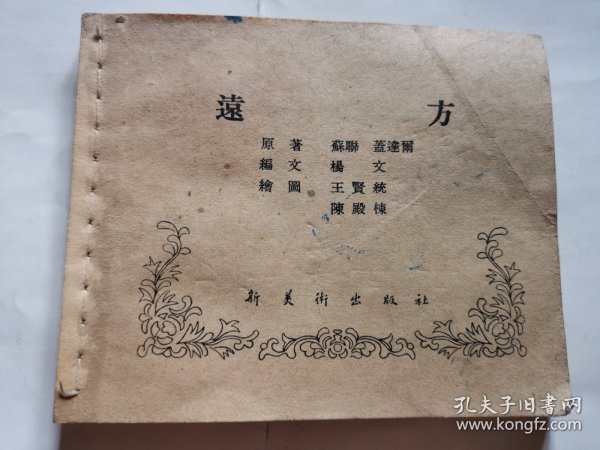 遠方
原著 蘇聯 蓋達爾
編文 楊文
繪圖 王賢統
陳殿棟
新美術出版社
孔夫子旧书网
www.kongfz.com